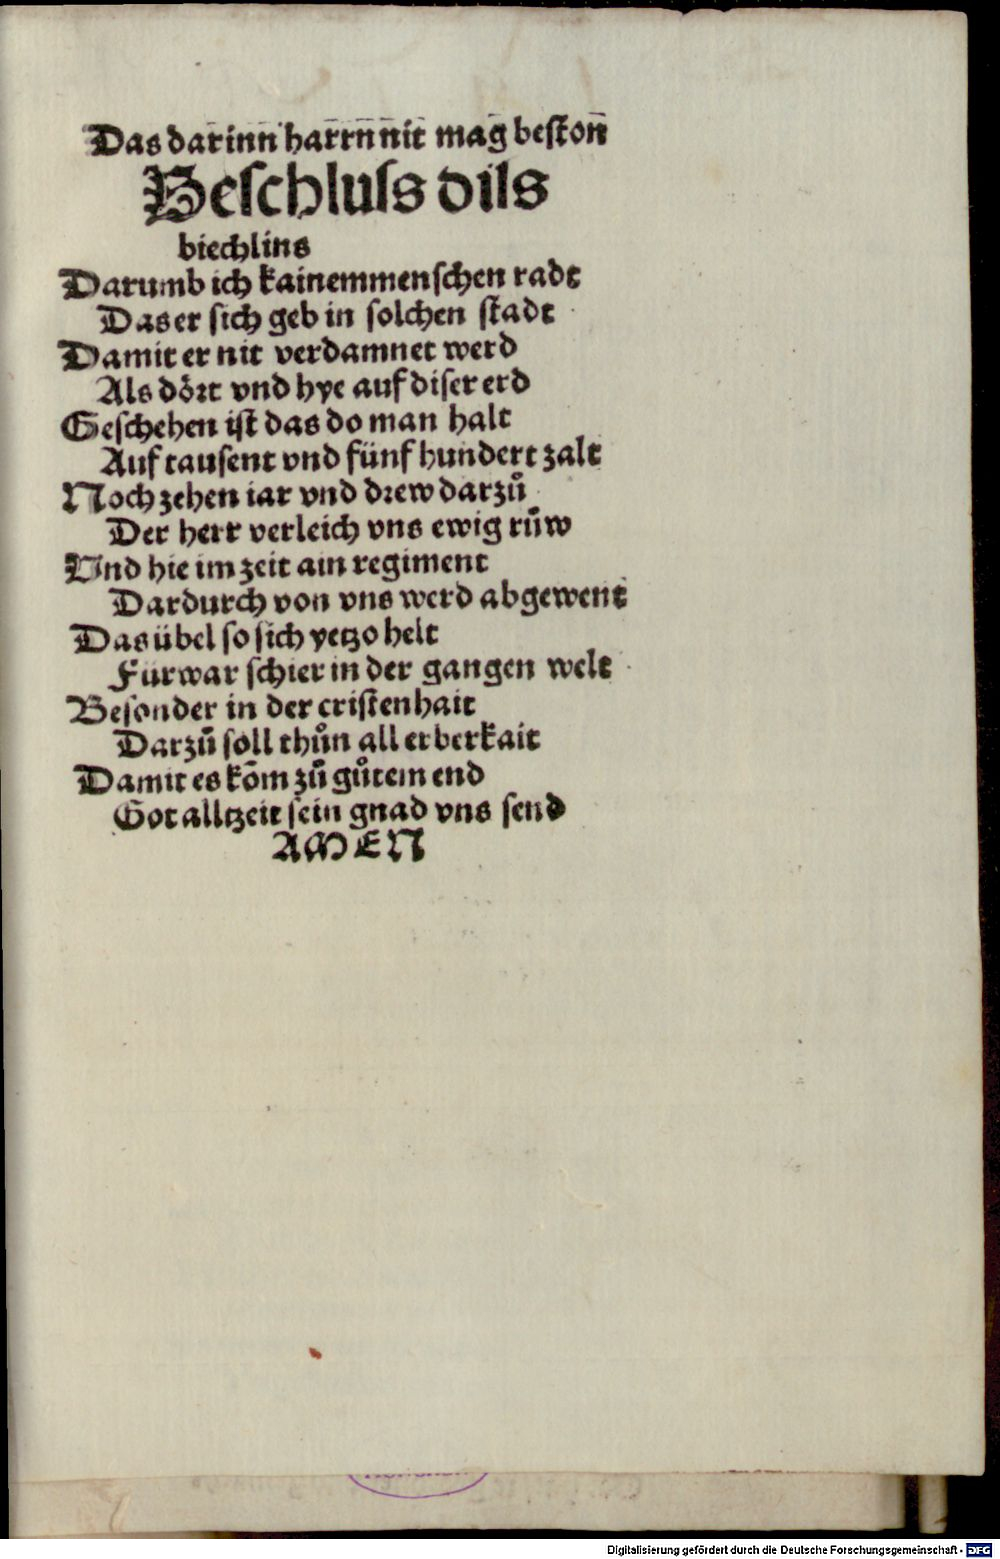 Das darinn harrn nit mag beston
Beschluss diss
biechlins
Darumb ich kainem menschen radt
Das er sich geb in solchen stadt
Damit er nit verdamnet werd
Als dört vnd hye auf diser erd
Geschehen ist das do man halt
Auf tausent vnd fünf hundert zalt
Noch zehen iar vnd drew darzuͦ
Der herr verleich vns ewig ruͦw
Vnd hie im zeit ain regiment
Dardurch von vns werd abgewent
Das übel so sich yetzo helt
Fürwar schier in der gangen welt
Besonder in der cristenhait
Darzuͦ soll thuͦn all erberkait
Damit es kōm zuͦ guͦtem end
Got alltzeit sein gnad vns send
AMEN
Digitalisierung gefördert durch die Deutsche Forschungsgemeinschaft - DFG